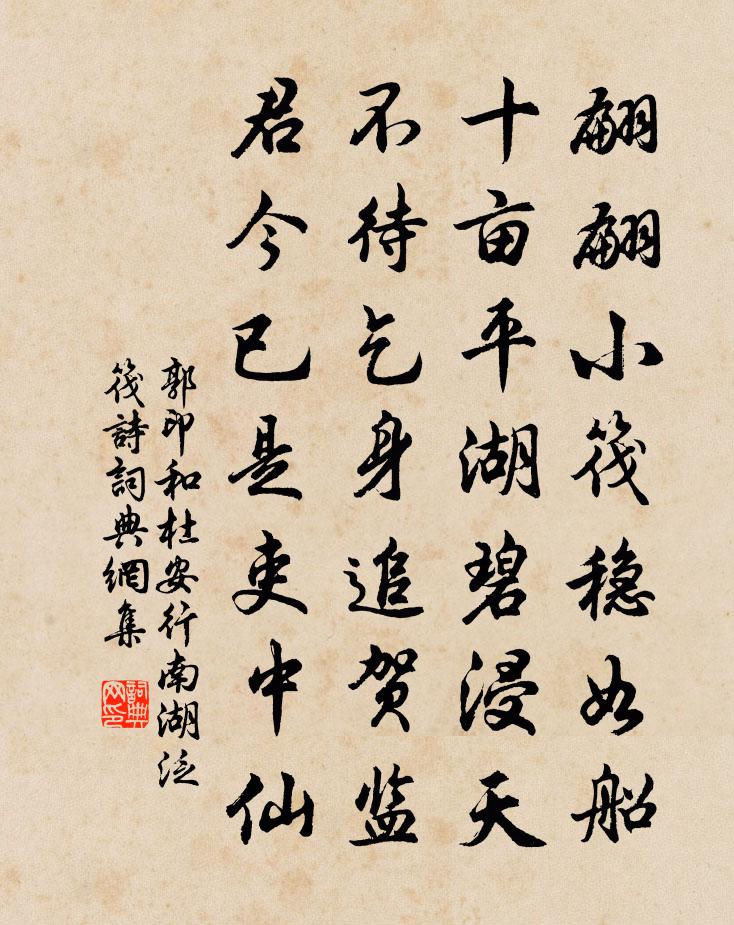 翩翩小筏稳如船
十亩平湖碧浸天
不待乞身追贺监
君今已是吏中仙
郭印和杜安行南湖泛
筏詩詞典網集
詞典网印